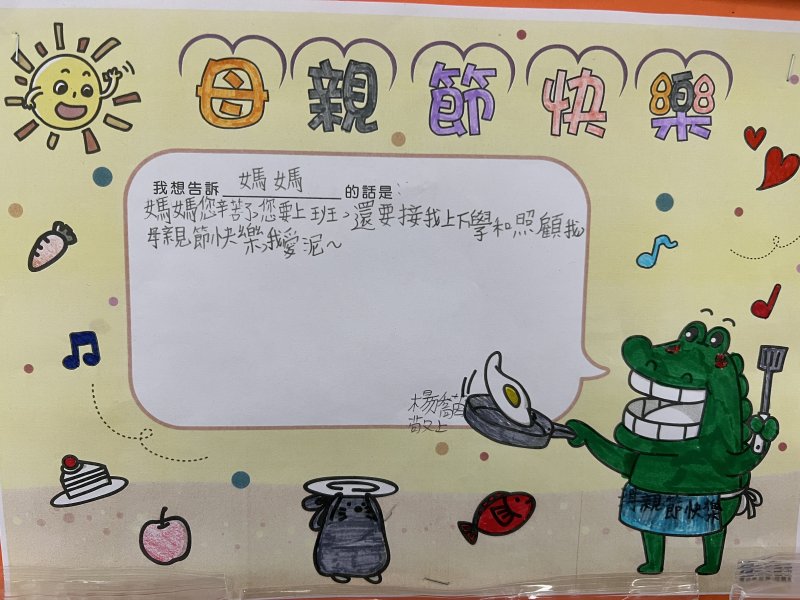 母親節快樂
我想告訴 媽媽 的話是:
媽媽您辛苦了,您要上班,還要接我上下學和照顧我
母親節快樂,我愛泥~
敬上
母親節快樂